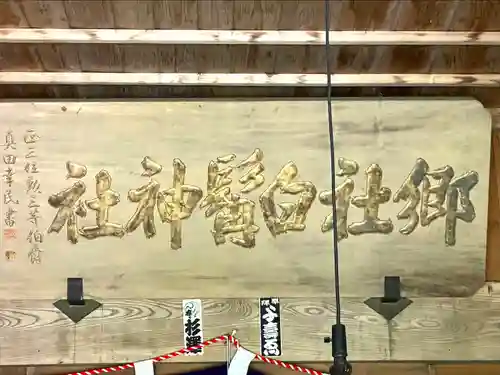 郷社白髭神社
正三位勲三等伯爵
真田幸民書